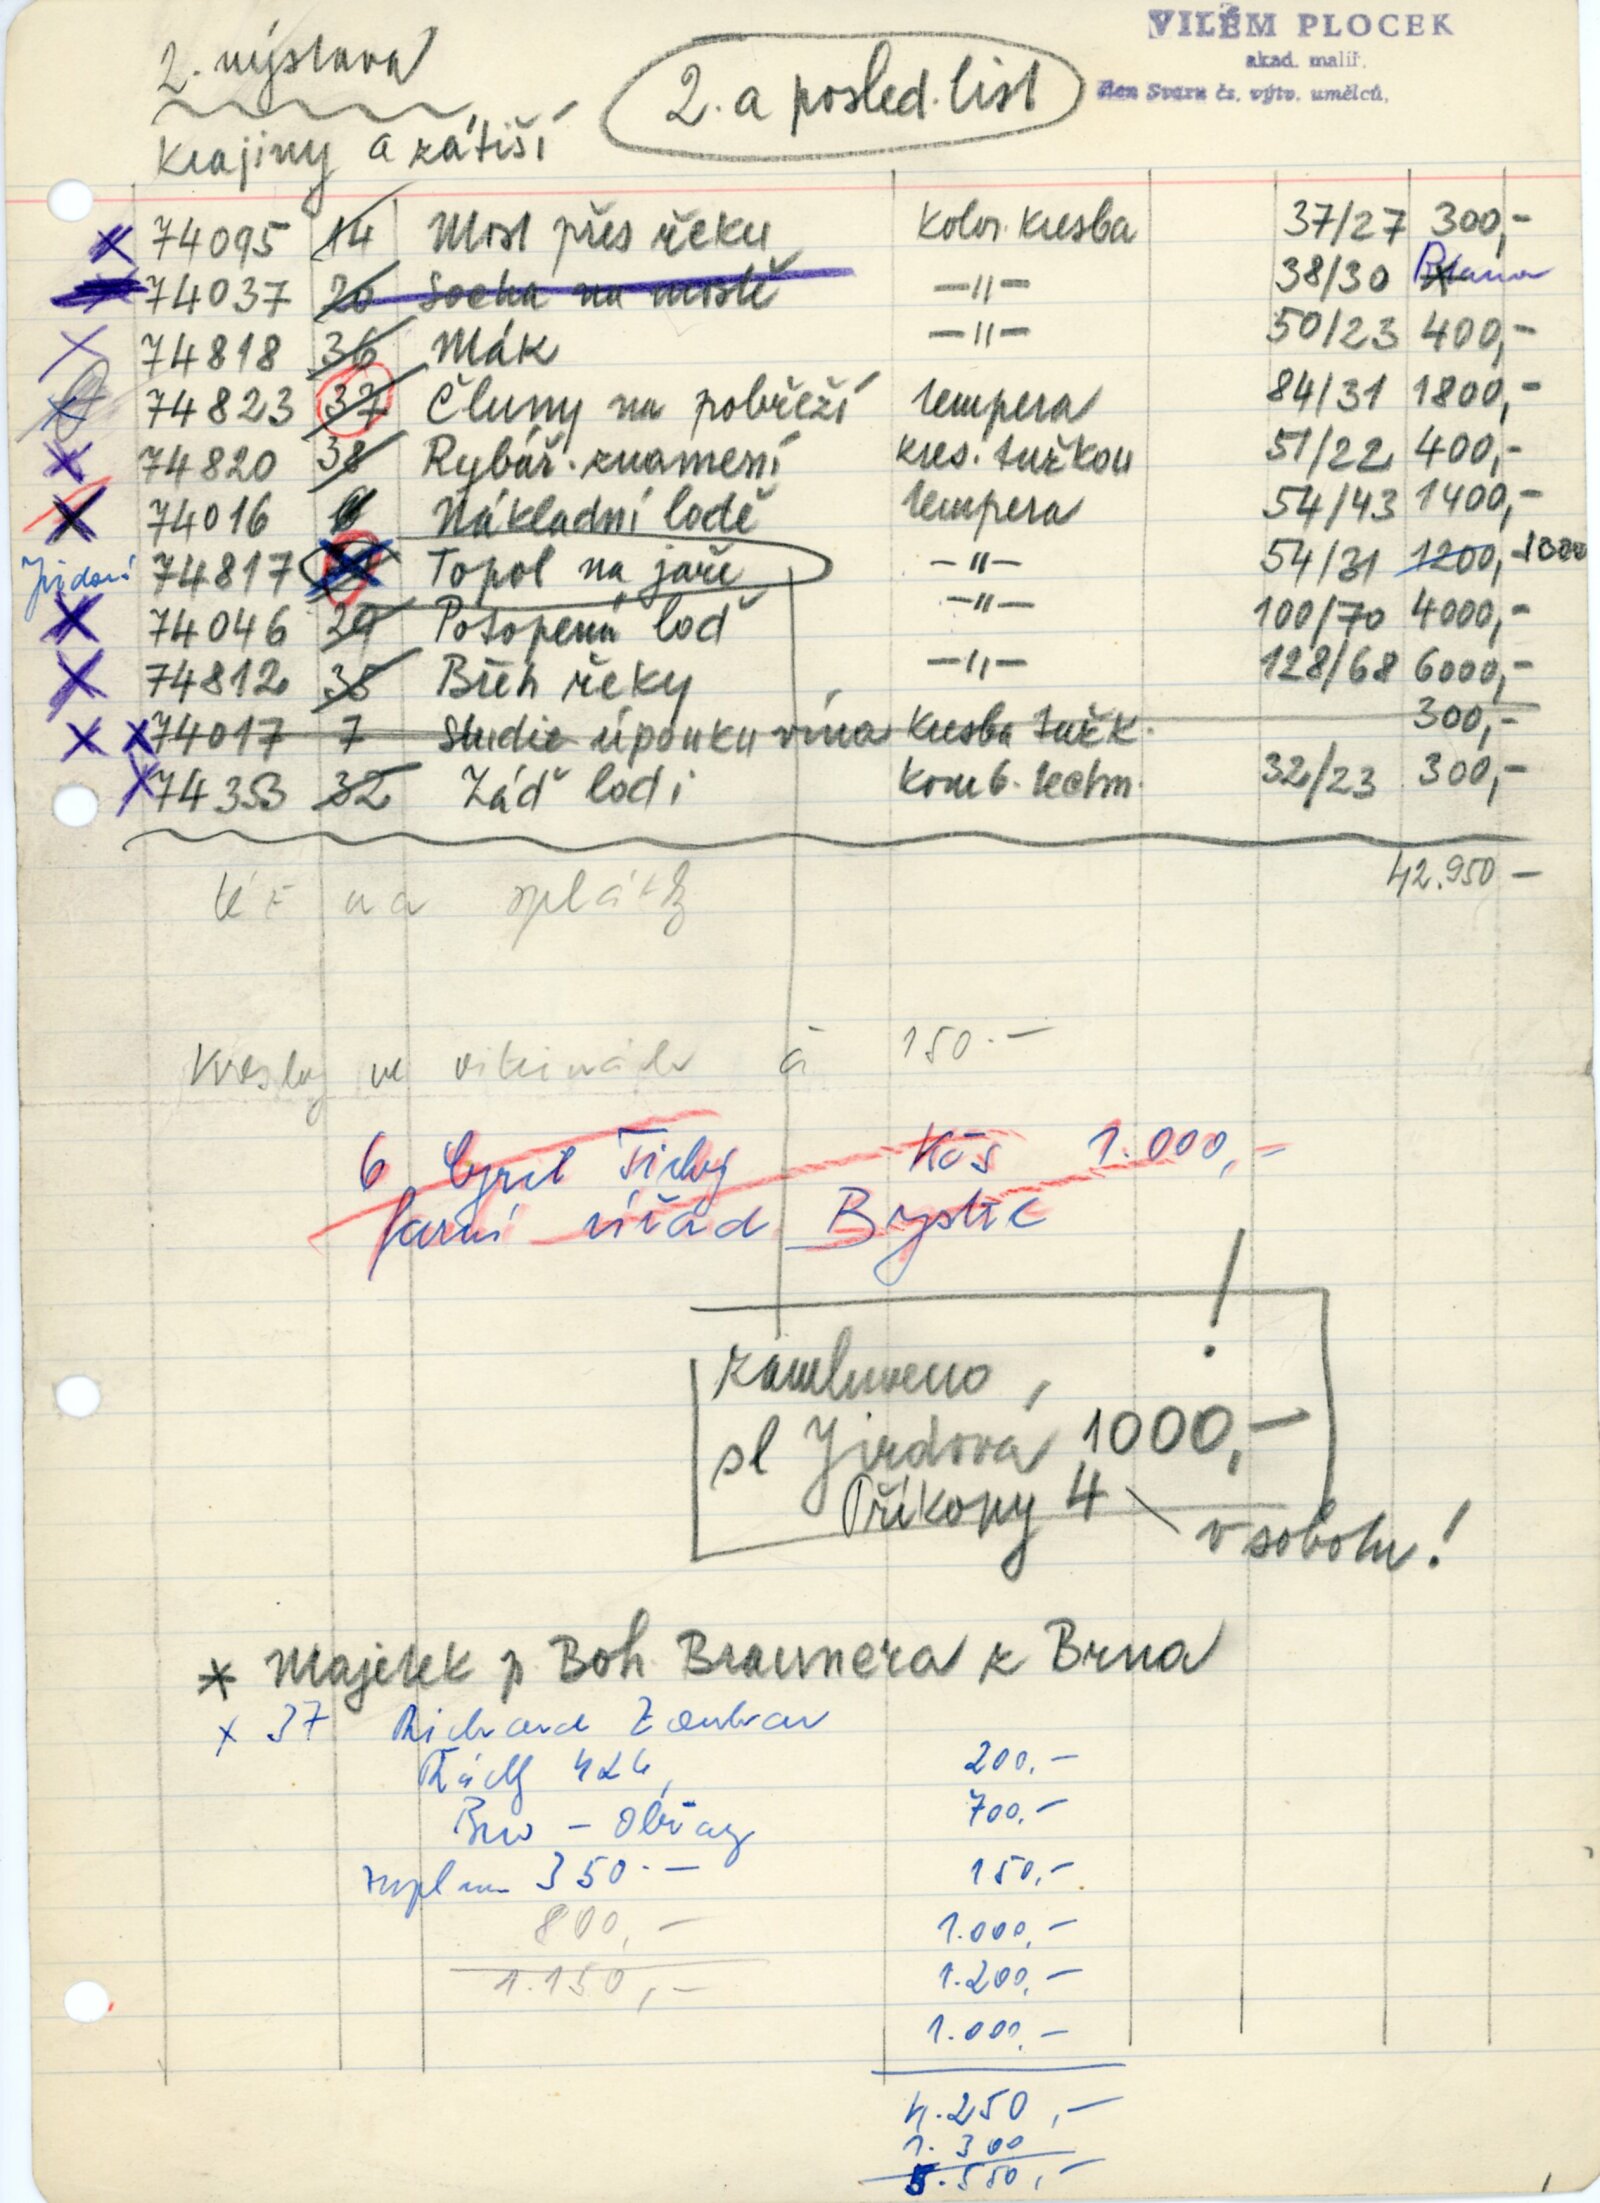 VILÉM PLOCEK
akad. malíř.
člen Svazu čs. výtv. umělců,
2. výstava
2. a posled. list
Krajiny a zátiší
74095 14 Most přes řeku kolor. kresba 37/27 300,-
74037 20 Socha na mostě —〃— 38/30
74818 36 Mák —〃— 50/23 400,-
74823 37 Čluny na pobřeží tempera 84/31 1800,-
74820 38 Rybář. znamení kres. tužkou 51/22 400,-
74016 6 Nákladní lodě tempera 54/43 1400,-
Jirdoví 74817 Topol na jaře —〃— 54/31 1200,- 1000
74046 29 Potopená loď —〃— 100/70 4000,-
74812 35 Břeh řeky —〃— 128/68 6000,-
74017 7 Studie úponku vína kresba tužk. 300,-
74353 32 Záď lodi komb. techn. 32/23 300,-
42.950 —
též na splátky
Kresby ve vitrinách á 150.—
6 Cyril Tichý Kčs 1.000,-
farní úřad Bystrc
!
zamluveno,
sl Jirdová 1000,-
Příkopy 4
v sobotu!
* Majetek p Boh. Braunera z Brna
x 37 Richard Zoubar
424, 200.—
Brno – Obřany 700.—
350.— 150.—
800,— 1.000.—
1.150,— 1.200.—
1.000.—
4.250,—
1.300
5.550,—